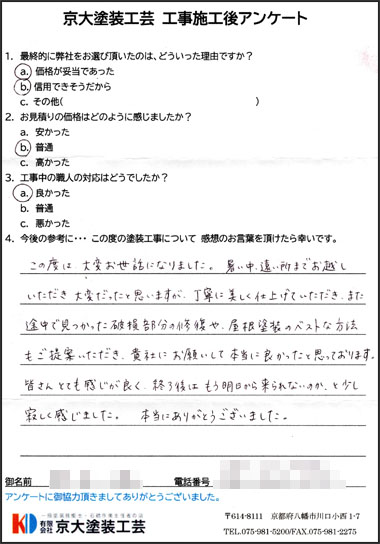 京大塗装工芸 工事施工後アンケート
1．最終的に弊社をお選び頂いたのは、どういった理由ですか？
a. 価格が妥当であった
b. 信用できそうだから
c. その他( )
2．お見積りの価格はどのように感じましたか？
a. 安かった
b. 普通
c. 高かった
3．工事中の職人の対応はどうでしたか？
a. 良かった
b. 普通
c. 悪かった
4．今後の参考に・・・ この度の塗装工事について 感想のお言葉を頂けたら幸いです。
この度は 大変お世話になりました。 暑い中、遠い所までお越し
いただき 大変だったと思いますが、丁寧に美しく仕上げていただき、また
途中で見つかった破損部分の修復や、屋根塗装のベストな方法
もご提案いただき、貴社にお願いして本当に良かったと思っております。
皆さんとても感じが良く、終了後は もう明日から来られないのか、と少し
寂しく感じました。 本当にありがとうございました。
御名前 電話番号
アンケートに御協力頂きましてありがとうございました。
KD 有限会社 京大塗装工芸
〒614-8111 京都府八幡市川口小西 1-7
TEL.075-981-5200/FAX.075-981-2275